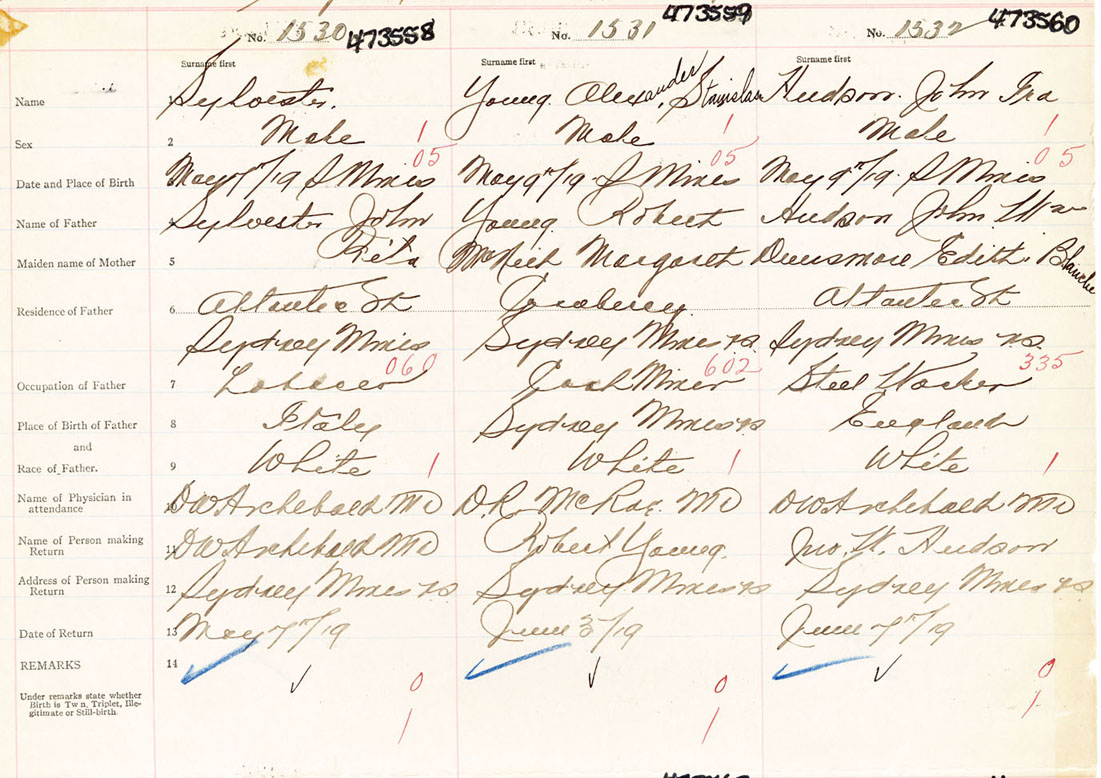 No. 1530 473558 No. 1531 473559 No. 1532 473560
Surname first Surname first Surname first
Name 1 Sylvester. Young. Alexander, Stanislas Hudson. John Ira
Sex 2 Male 1 Male 1 Male 1
05 05 05
Date and Place of Birth May 7"/19 S Mines May 9"/19. S Mines May 9"/19. S Mines
Name of Father 4 Sylvester John Young. Robert Hudson John Wm
Maiden name of Mother 5 Rita Margaret Dunsmore Edith. Blanche
Residence of Father 6 Atlantic St Cranberry Atlantic St
Sydney Mines Sydney Mines NS Sydney Mines NS
060 602 335
Occupation of Father 7 Laborer Coal Miner Steel Worker
Place of Birth of Father 8 Italy Sydney Mines NS England
and
Race of Father. 9 White 1 White 1 White 1
Name of Physician in
attendance 10 DW Archibald MD D.R. McRae. MD DW Archibald MD
Name of Person making
Return 11 DW Archibald MD Robert Young. Jno. W. Hudson
Address of Person making
Return 12 Sydney Mines NS Sydney Mines NS Sydney Mines NS
Date of Return 13 May 7"/19 June 3/19 June 7"/19
REMARKS 14
0 0 0
Under remarks state whether
Birth is Twin, Triplet, Ille-
gitimate or Still-birth.
1 1 1